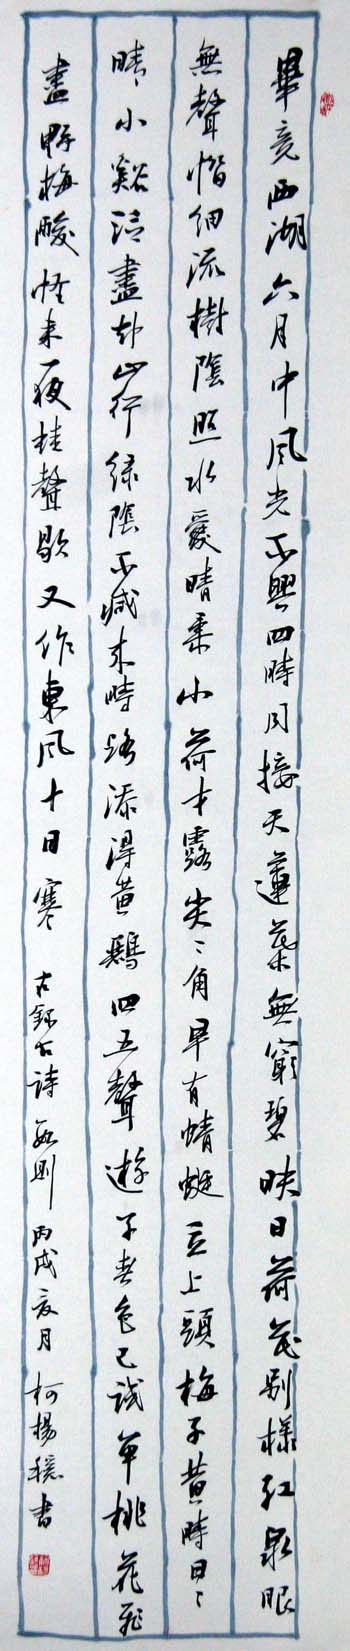 畢竟西湖六月中風光不與四時同接天蓮葉無窮碧映日荷花別樣紅泉眼
無聲惜細流樹陰照水愛晴柔小荷才露尖〻角早有蜻蜓立上頭梅子黃時日〻
晴〻小谿泛盡却山行綠陰不減來時路添得黃鸝四五聲遊子春色已試單桃花飛
盡野梅酸怪來一夜蛙聲歇又作東風十日寒
古錄古詩數則 丙戌夏月 柯楊穩書